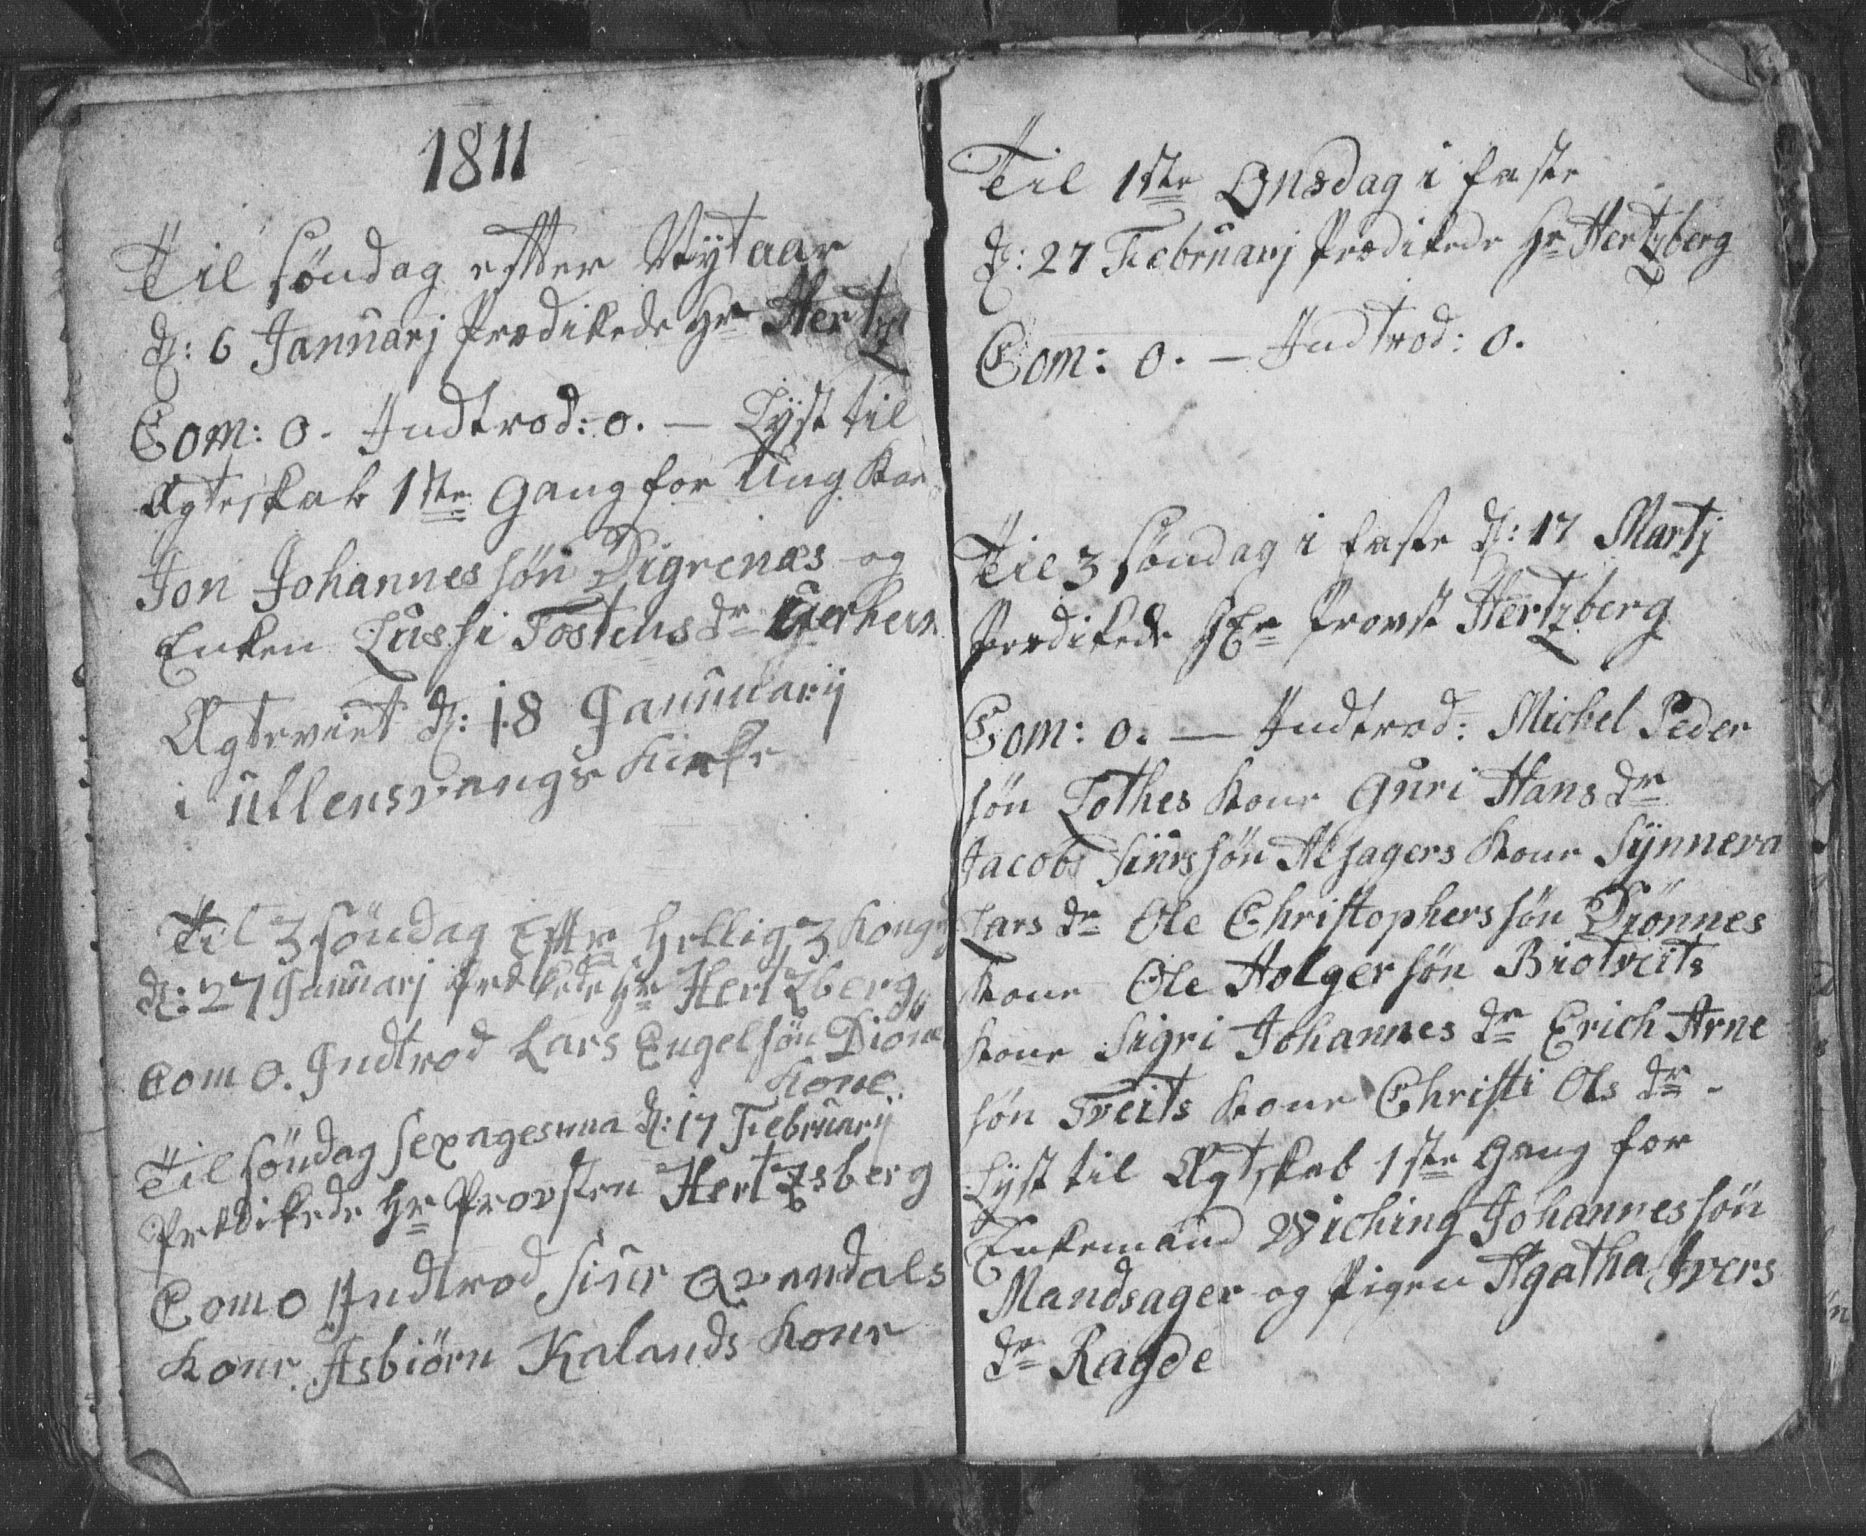 1811
Til Søndag efter Nÿtaar
d: 6 Januarj Prædikede Hr Hertz
Com: 0. Indtrod: 0. — Lÿst til
Ægteskab 1ste Gang for Ung Kar
Jon Johannes søn Digrenæs og
Enken Lussi Tostens dr
Ægteviet d: 18 Januarij
i Ullensvangs Kirke
Til 3 Søndag Efter Hellig 3 Kong
d: 27 Januarj Predikede Hr Hertzberg
Com 0. Indtrod Lars Engelsøn Diøn
Kone
Til Søndag Sexagesima d: 17 Februarij
Prædikede Hr Provsten Hertzsberg
Com 0 Indtrod Siur Qvandals
Kone. Asbiørn Kalands Kone
Til 1ste Onsdag i Faste
d: 27 Februarj Prædikede Hr Hertzberg
Com: 0. — Indtrod: 0.
Til 3 Søndag i Faste d: 17 Martj
Prædikede Hr Provst Hertzberg
Com: 0. — Indtrod: Michel Peder
søn Lothes Kone Guri Hans dr
Jacob Siurssøn Alsagers Kone Sÿnneva
Lars dr Ole Christophers søn Diønnes
Kone Ole Holger søn Biotveits
Kone Sigri Johannes dr Erich Arne
søn Tveits Kone Christi Ols dr -
Lÿst til Ægtskab 1ste Gang for
Enkemand Wiching Johannes søn
Mandsager og Pigen Agatha Ivers
dr Ragde